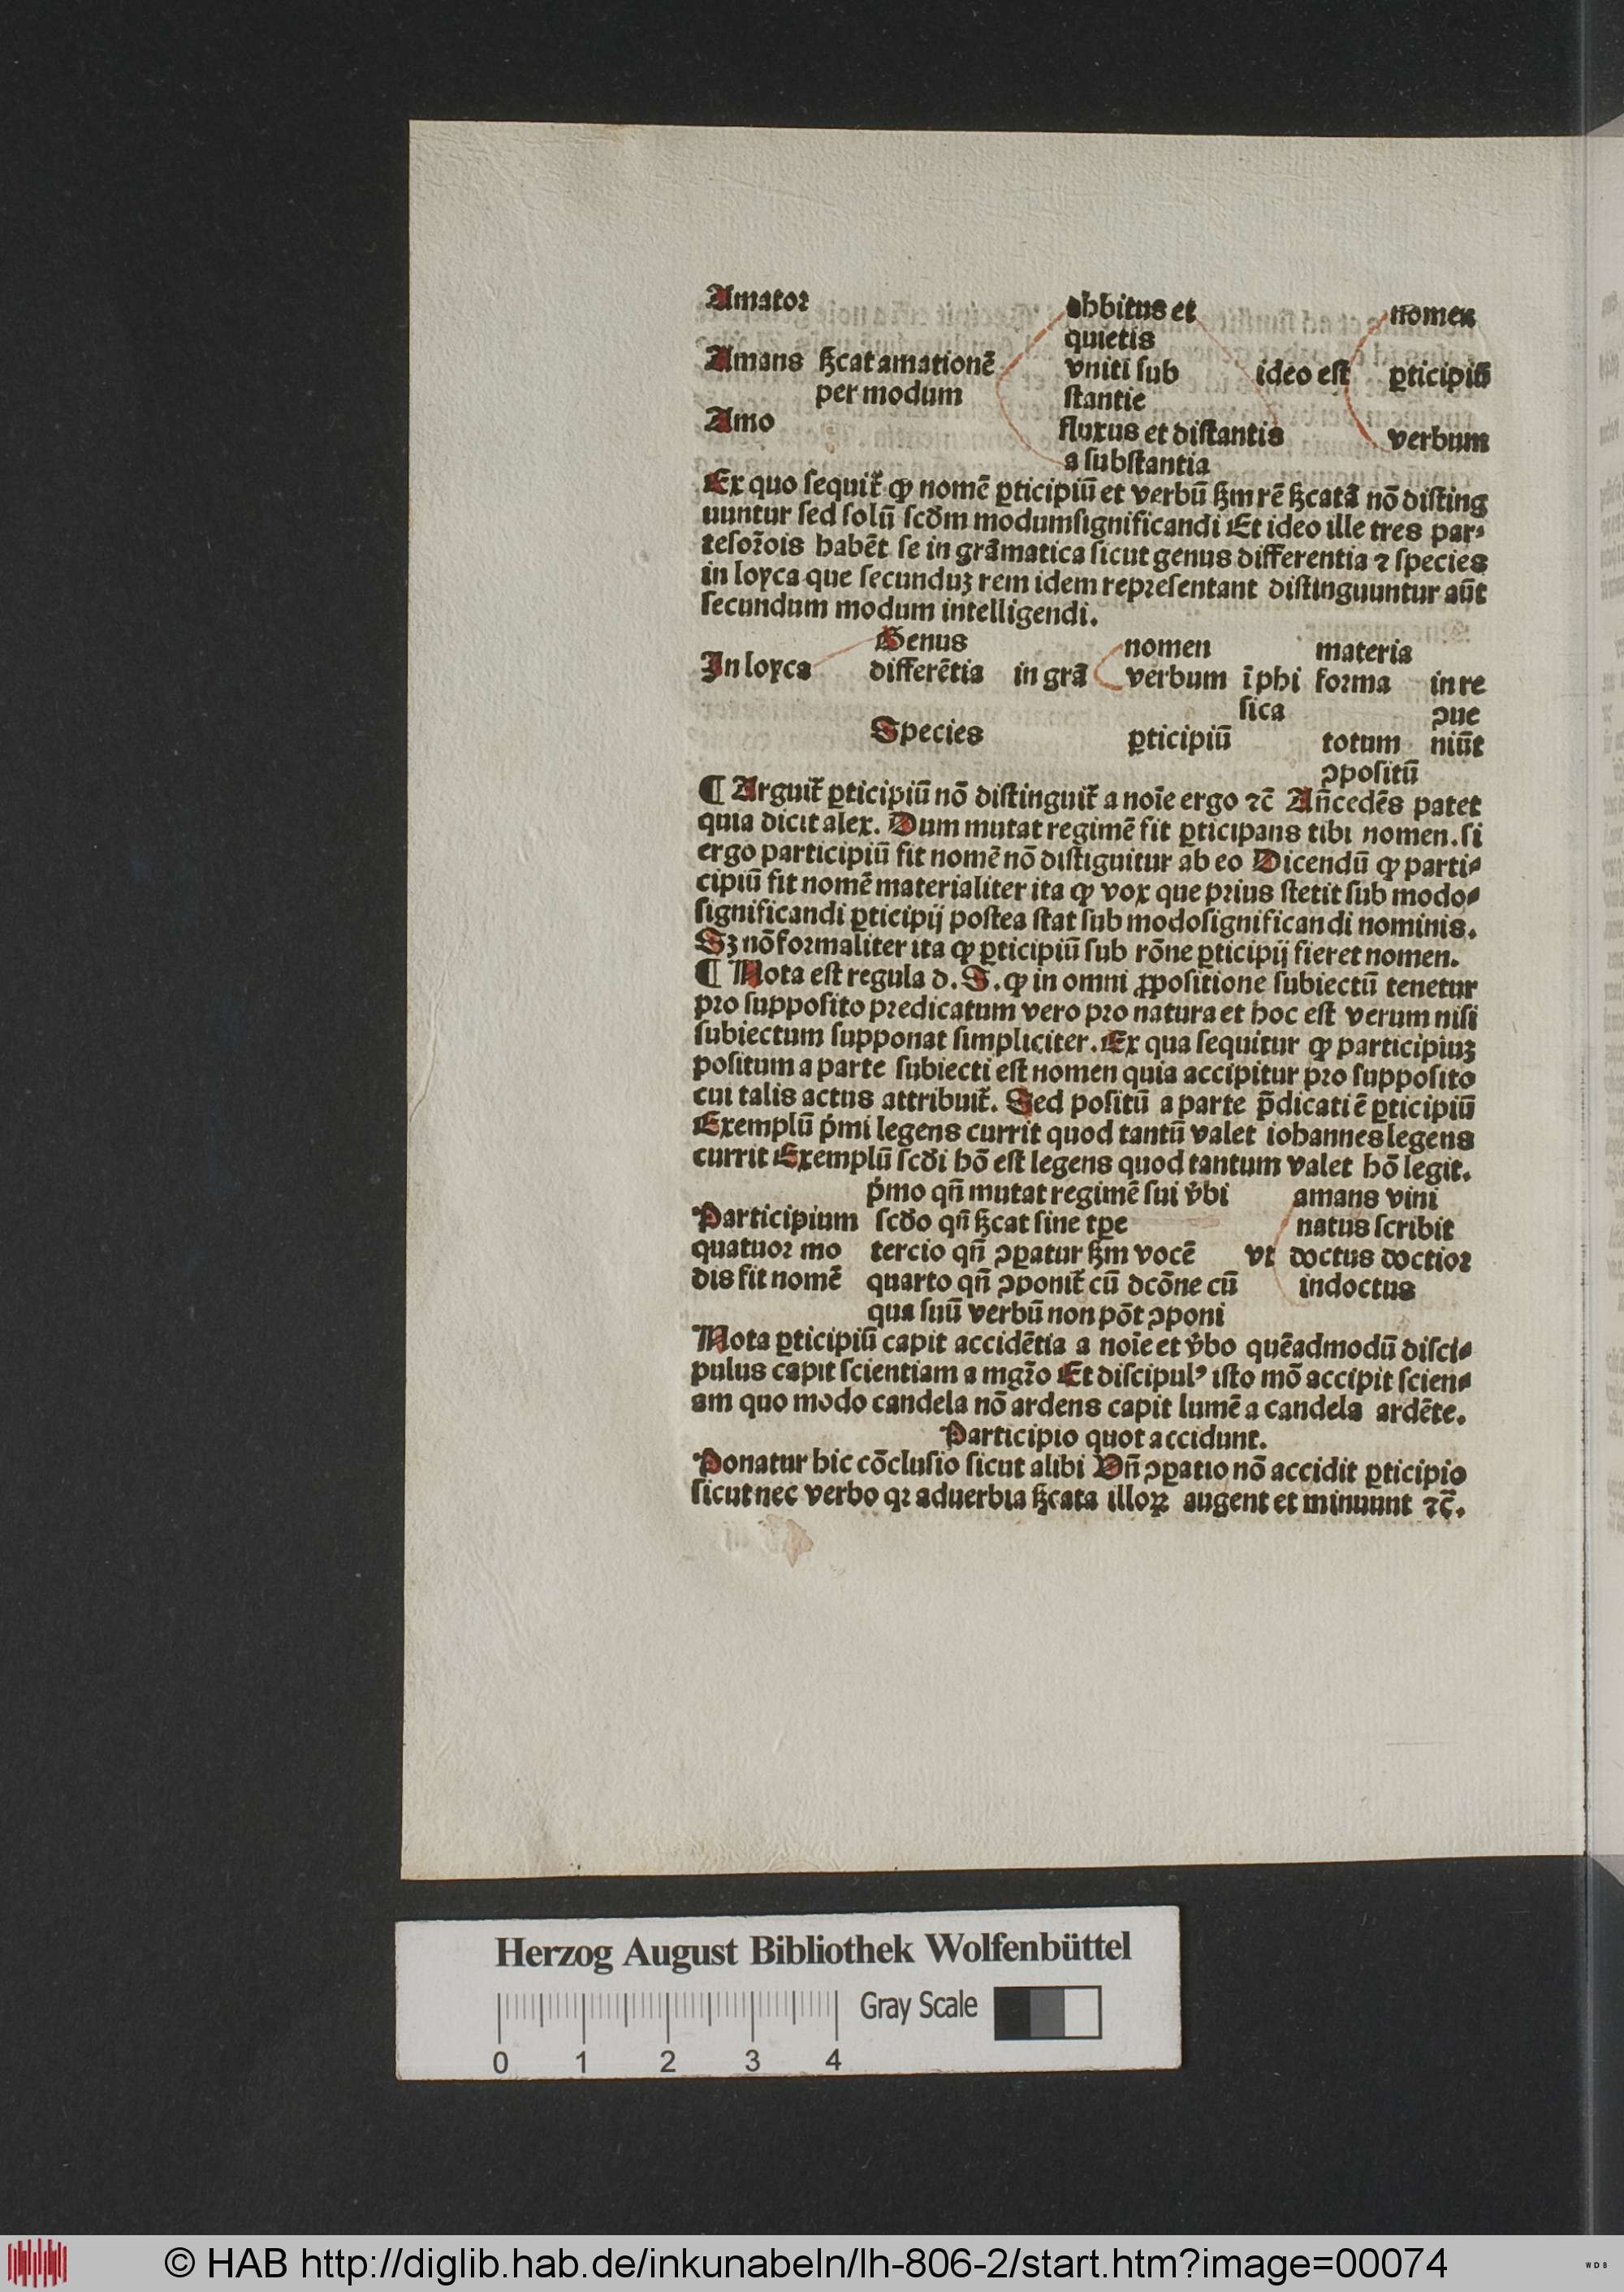 Amator
ahbitus et
nomen
quietis
Amans ẜcat amationē
vniti sub
ideo est
ꝑticipiū
per modum
stantie
Amo
fluxus et distantis
verbum
a substantia
Ex quo sequit̃ ꝙ nomē ꝑticipiū et verbū ẜm rē ẜcatā nō disting
uuntur sed solū scđm modumsignificandi Et ideo ille tres par⸗
tesor̄ois habēt se in grāmatica sicut genus differentia ⁊ species
in loyca que secunduꝫ rem idem representant distinguuntur aūt
secundum modum intelligendi.
Genus
nomen
materia
In loyca differētia in grā verbum ī phi forma in re
sica
ↄue
Species ꝑticipiū totum niūt
ↄpositū
¶ Arguit̃ ꝑticipiū nō distinguit̃ a noīe ergo ⁊c̄ An̄cedēs patet
quia dicit alex. Dum mutat regimē fit ꝑticipans tibi nomen. si
ergo participiū fit nomē nō distiguitur ab eo Dicendū ꝙ parti⸗
cipiū fit nomē materialiter ita ꝙ vox que prius stetit sub modo⸗
significandi ꝑticipij postea stat sub modosignificandi nominis.
Sꝫ nō formaliter ita ꝙ ꝑticipiū sub rōne ꝑticipij fieret nomen.
¶ Nota est regula d. S. ꝙ in omni ꝓpositione subiectū tenetur
pro supposito predicatum vero pro natura et hoc est verum nisi
subiectum supponat simpliciter. Ex qua sequitur ꝙ participiuꝫ
positum a parte subiecti est nomen quia accipitur pro supposito
cui talis actus attribuit̃. Sed positū a parte p̄dicati ē ꝑticipiū
Exemplū ṕmi legens currit quod tantū valet iohannes legens
currit Exemplū scđi hō est legens quod tantum valet hō legit.
ṕmo qn̄ mutat regimē sui v̓bi amans vini
Participium scđo qn̄ ẜcat sine tꝑe natus scribit
quatuor mo tercio qn̄ ↄꝑatur ẜm vocē vt doctus doctior
dis fit nomē quarto qn̄ ↄponit̃ cū dcōne cū indoctus
qua suū verbū non pōt ↄponi
Nota ꝑticipiū capit accidētia a noīe et v̓bo quēadmodū disci⸗
pulus capit scientiam a mgr̄o Et discipulꝰ isto mō accipit scien⸗
am quo modo candela nō ardens capit lumē a candela ardēte.
Participio quot accidunt.
Ponatur hic cōclusio sicut alibi Vn̄ ↄꝑatio nō accidit ꝑticipio
sicut nec verbo qꝛ aduerbia ẜcata illoꝝ augent et minuunt ⁊c̄.
Herzog August Bibliothek Wolfenbüttel
Gray Scale
0 1 2 3 4
© HAB http://diglib.hab.de/inkunabeln/lh-806-2/start.htm?image=00074
WDB